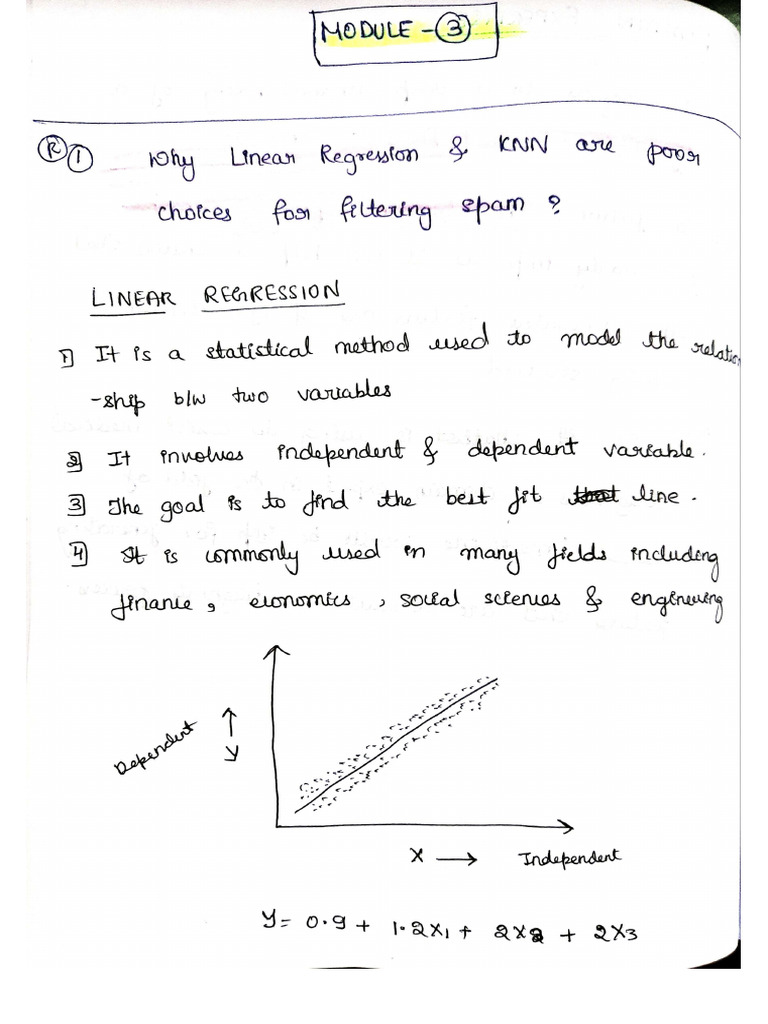 MODULE - 3
R 1 Why Linear Regression & KNN are poor
choices for filtering spam ?
LINEAR REGRESSION
1] It is a statistical method used to model the relation
-ship b/w two variables
2] It involves independent & dependent variable.
3] The goal is to find the best fit that line.
4] It is commonly used in many fields including
finance, economics, social sciences & engineering
Dependent ↑ y
X → Independent
Y = 0.9 + 1.2X1 + 2X2 + 2X3